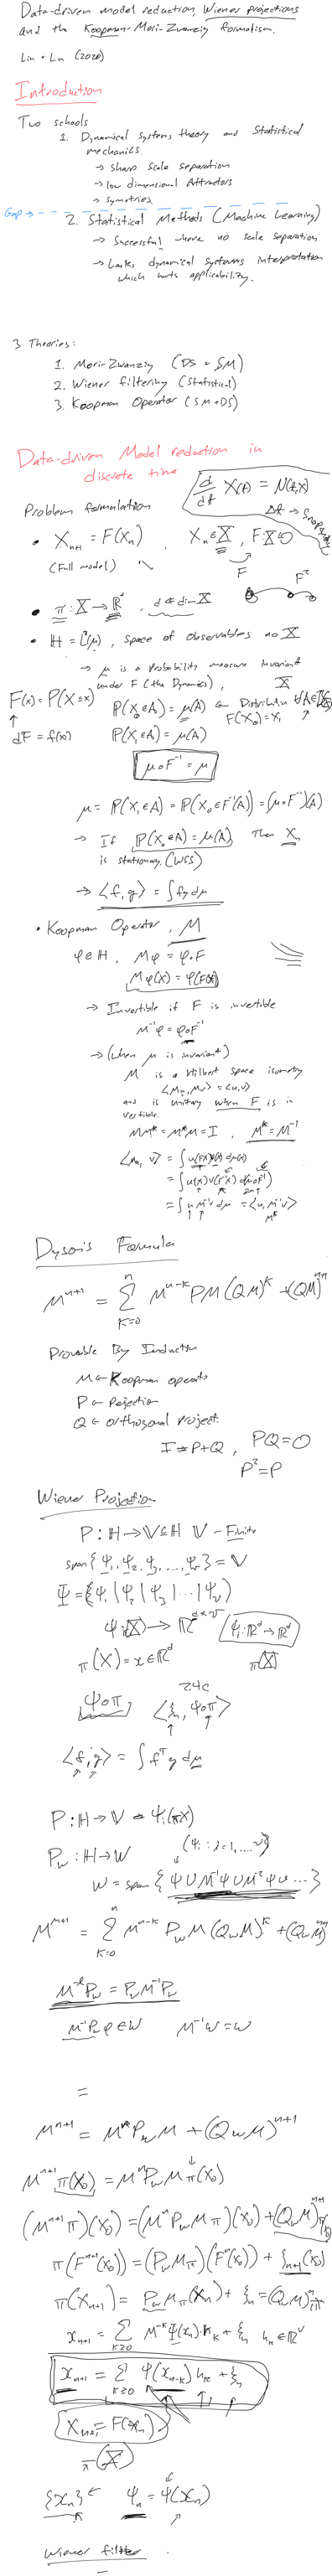 Data-driven model reduction, Wiener projections
and the Koopman-Mori-Zwanzig formalism.
Lin + Lu (2020)
Introduction
Two schools
1. Dynamical systems theory and Statistical
mechanics.
→ Sharp Scale Separation
→ low dimensional Attractors
→ symetries
Gap →
2. Statistical Methods (Machine Learning)
→ Successful where no scale separation
→ Lacks dynamical systems interpretation
which hurts applicability.
3 Theories:
1. Mori-Zwanzig (DS + SM)
2. Wiener filtering (Statistical)
3. Koopman Operator (SM+DS)
Data-driven Model reduction in
discrete time
d/dt X(t) = N(t,X)
Δt →
Problem formulation
• X_{n+1} = F(X_n), X_n ∈ X, F: X
(Full model)
F F²
• π: X → R^d, d ≪ dim X
• H = L²(μ), space of observables no X
→ μ is a Probability measure invariant
under F (the Dynamics),
F(x) = P(X ≤ x)
P(X_0∈A) = μ(A) ← Distribution
F(X_0) = X_1
dF = f(x)
P(X_1∈A) = μ(A)
μ∘F⁻¹ = μ
μ = P(X_1∈A) = P(X_0∈F⁻¹(A)) = (μ∘F⁻¹)(A)
→ If P(X_0∈A) = μ(A), Then X_n
is stationary. (WSS)
→ ⟨f,g⟩ = ∫fg dμ
• Koopman Operator, M
φ∈H, Mφ = φ∘F
Mφ(X) = φ(F(X))
→ Invertible if F is invertible
M⁻¹φ = φ∘F⁻¹
→ (when μ is invariant)
M is a Hilbert space isometry
⟨Mu, Mv⟩ = ⟨u,v⟩
and is unitary when F is in
vertible.
MM* = M*M = I, M* = M⁻¹
⟨Mu, v⟩ = ∫u(F(X))v(X) dμ(X)
= ∫u(x)v(F⁻¹X) d(μ∘F⁻¹)
= ∫u M⁻¹v dμ = ⟨u, M⁻¹v⟩
M*
Dyson's Formula
M^{n+1} = Σ_{k=0}^{n} M^{n-k} PM (QM)^k + (QM)^{n+1}
Provable By Induction
M ← Koopman operato
P ← Pojection
Q ← orthogonal project.
I = P+Q, PQ = O
P² = P
Wiener Projection
P: H → V ⊆ H V - Finite
span{ψ_1, ψ_2, ψ_3, ..., ψ_ν} = V
Ψ = (ψ_1 | ψ_2 | ψ_3 | ... | ψ_ν)
ψ: (X) → R^{d×ν} (ψ_i: R^d → R^d)
π(X) = x ∈ R^d π(X)
ψ∘π ⟨ξ_n, ψ∘π⟩
⟨f,g⟩ = ∫ f^T g dμ
P: H → V ψ_i(πX)
P_W: H → W (ψ_i: i=1,...ν)
W = span{ψ ∪ M⁻¹ψ ∪ M⁻²ψ ∪ ...}
M^{n+1} = Σ_{k=0}^{n} M^{n-k} P_W M (Q_W M)^k + (Q_W M)^{n+1}
M^{-ℓ} P_W = P_W M^{-ℓ} P_W
M⁻¹P_W φ ∈ W M⁻¹W = W
=
M^{n+1} = M^n P_W M + (Q_W M)^{n+1}
M^{n+1} π(X_0) = M^n P_W M π(X_0)
(M^{n+1} π)(X_0) = (M^n P_W M π)(X_0) + (Q_W M)^{n+1} π(X_0)
π(F^{n+1}(X_0)) = (P_W M π)(F^n(X_0)) + ξ_{n+1}(X_0)
π(X_{n+1}) = P_W M π(X_n) + ξ_n = (Q_W M)^n π
x_{n+1} = Σ_{k≥0} M^{-k} Ψ(x_n)·h_k + ξ_n h_k ∈ R^ν
x_{n+1} = Σ_{k≥0} ψ(x_{n-k}) h_k + ξ_n
X_{n+1} = F(X_n)
π(X)
{x_n} ← ψ_n = ψ(x_n)
Wiener filter